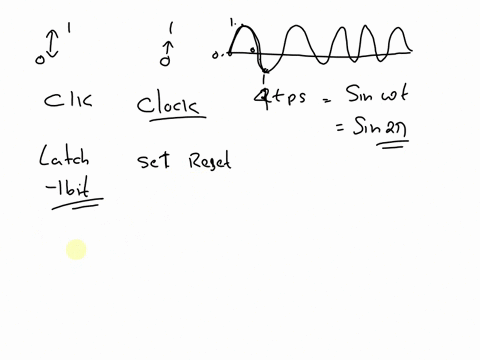 1 1 1
0 0 0
Clk Clock = Sin ωt
= Sin 2π
Latch Set Reset
-1bit